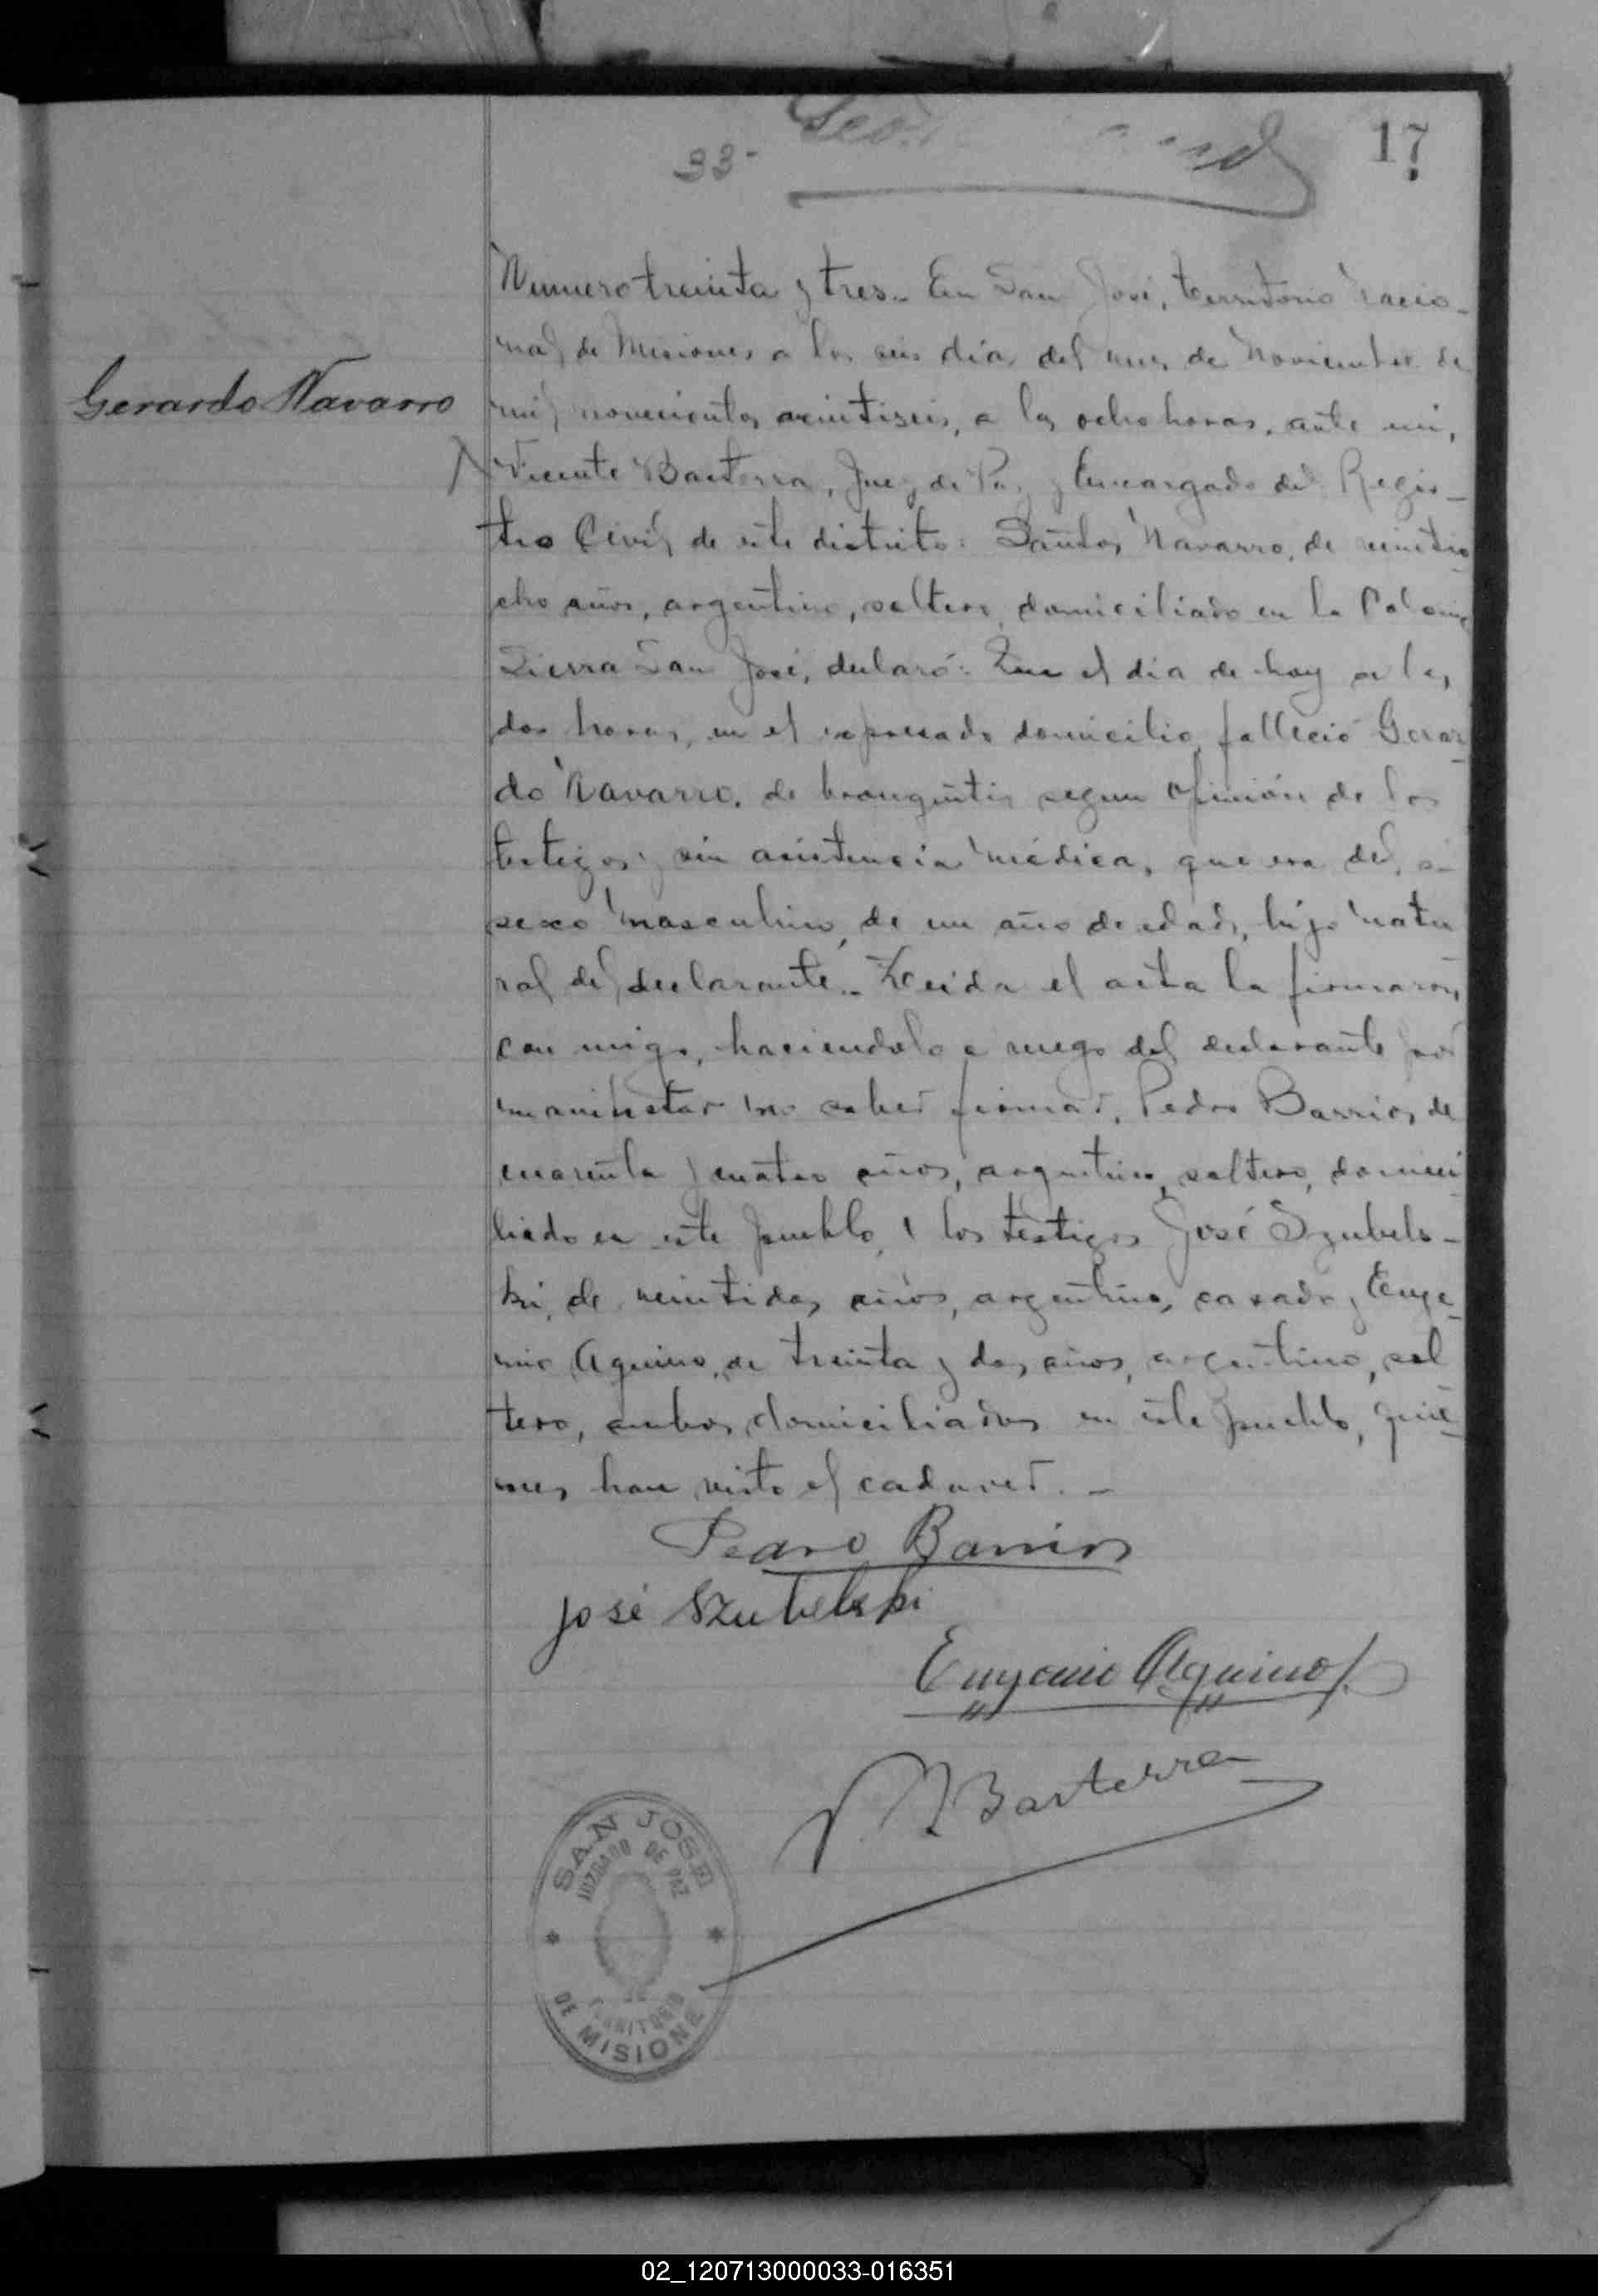 17
33-
Numero treinta y tres.- En San José, territorio nacio-
nal de Misiones a los seis dias del mes de Noviembre de
Gerardo Navarro
mil novecientos veintiseis, a las ocho horas, ante mi,
Vicente Basterra, Juez de Paz y Encargado del Regis-
tro Civil de este distrito: Santos Navarro, de veintio
cho años, argentino, soltero, domiciliado en la Colonia
Sierra San José, declaró: Que el dia de hoy a las
dos horas, en el expresado domicilio, falleció Gerar-
do Navarro, de bronquitis segun opinión de los
testigos y sin asistencia médica, que era del
sexo masculino, de un año de edad, hijo natu
ral del declarante.- Leida el acta la firmaron
con migo, haciendolo a ruego del declarante por
manifestar no saber firmar, Pedro Barrios, de
cuarenta y cuatro años, argentino, soltero, domici
liado en este pueblo, y los testigos José Szubels-
ki, de veintidos años, argentino, casado y Euge-
nio Aquino, de treinta y dos años, argentino, sol
tero, ambos domiciliados en este pueblo, quie-
nes han visto el cadaver.-
Pedro Barrios
José Szubelski
Eugenio Aquino
V Basterra
SAN JOSE
JUZGADO DE PAZ
TERRITORIO
DE MISIONES
02_120713000033-016351